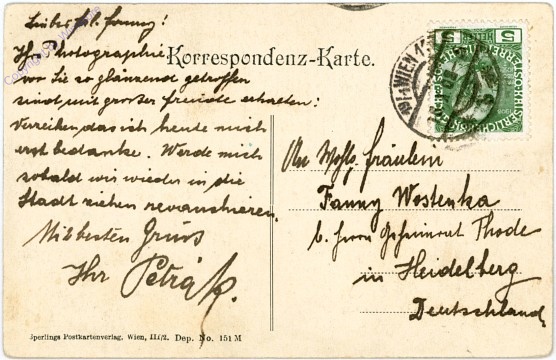 Liebes Frl. Fanny!
Ihr Photographie
wo Sie so glänzend getroffen
sind mit großer Freude erhalten!
Verzeihen das ich heute mich
erst bedanke. Werde mich
sobald wir wieder in die
Stadt ziehen revanchieren.
Mit besten Gruss
Ihr
Korrespondenz-Karte.
WIEN
5 5
An Wohlg. Fräulein
Fanny Westenka
b. Herrn Geheimrat Thode
in Heidelberg
Deutschland
Sperlings Postkartenverlag, Wien, III/2. Dep. No. 151 M